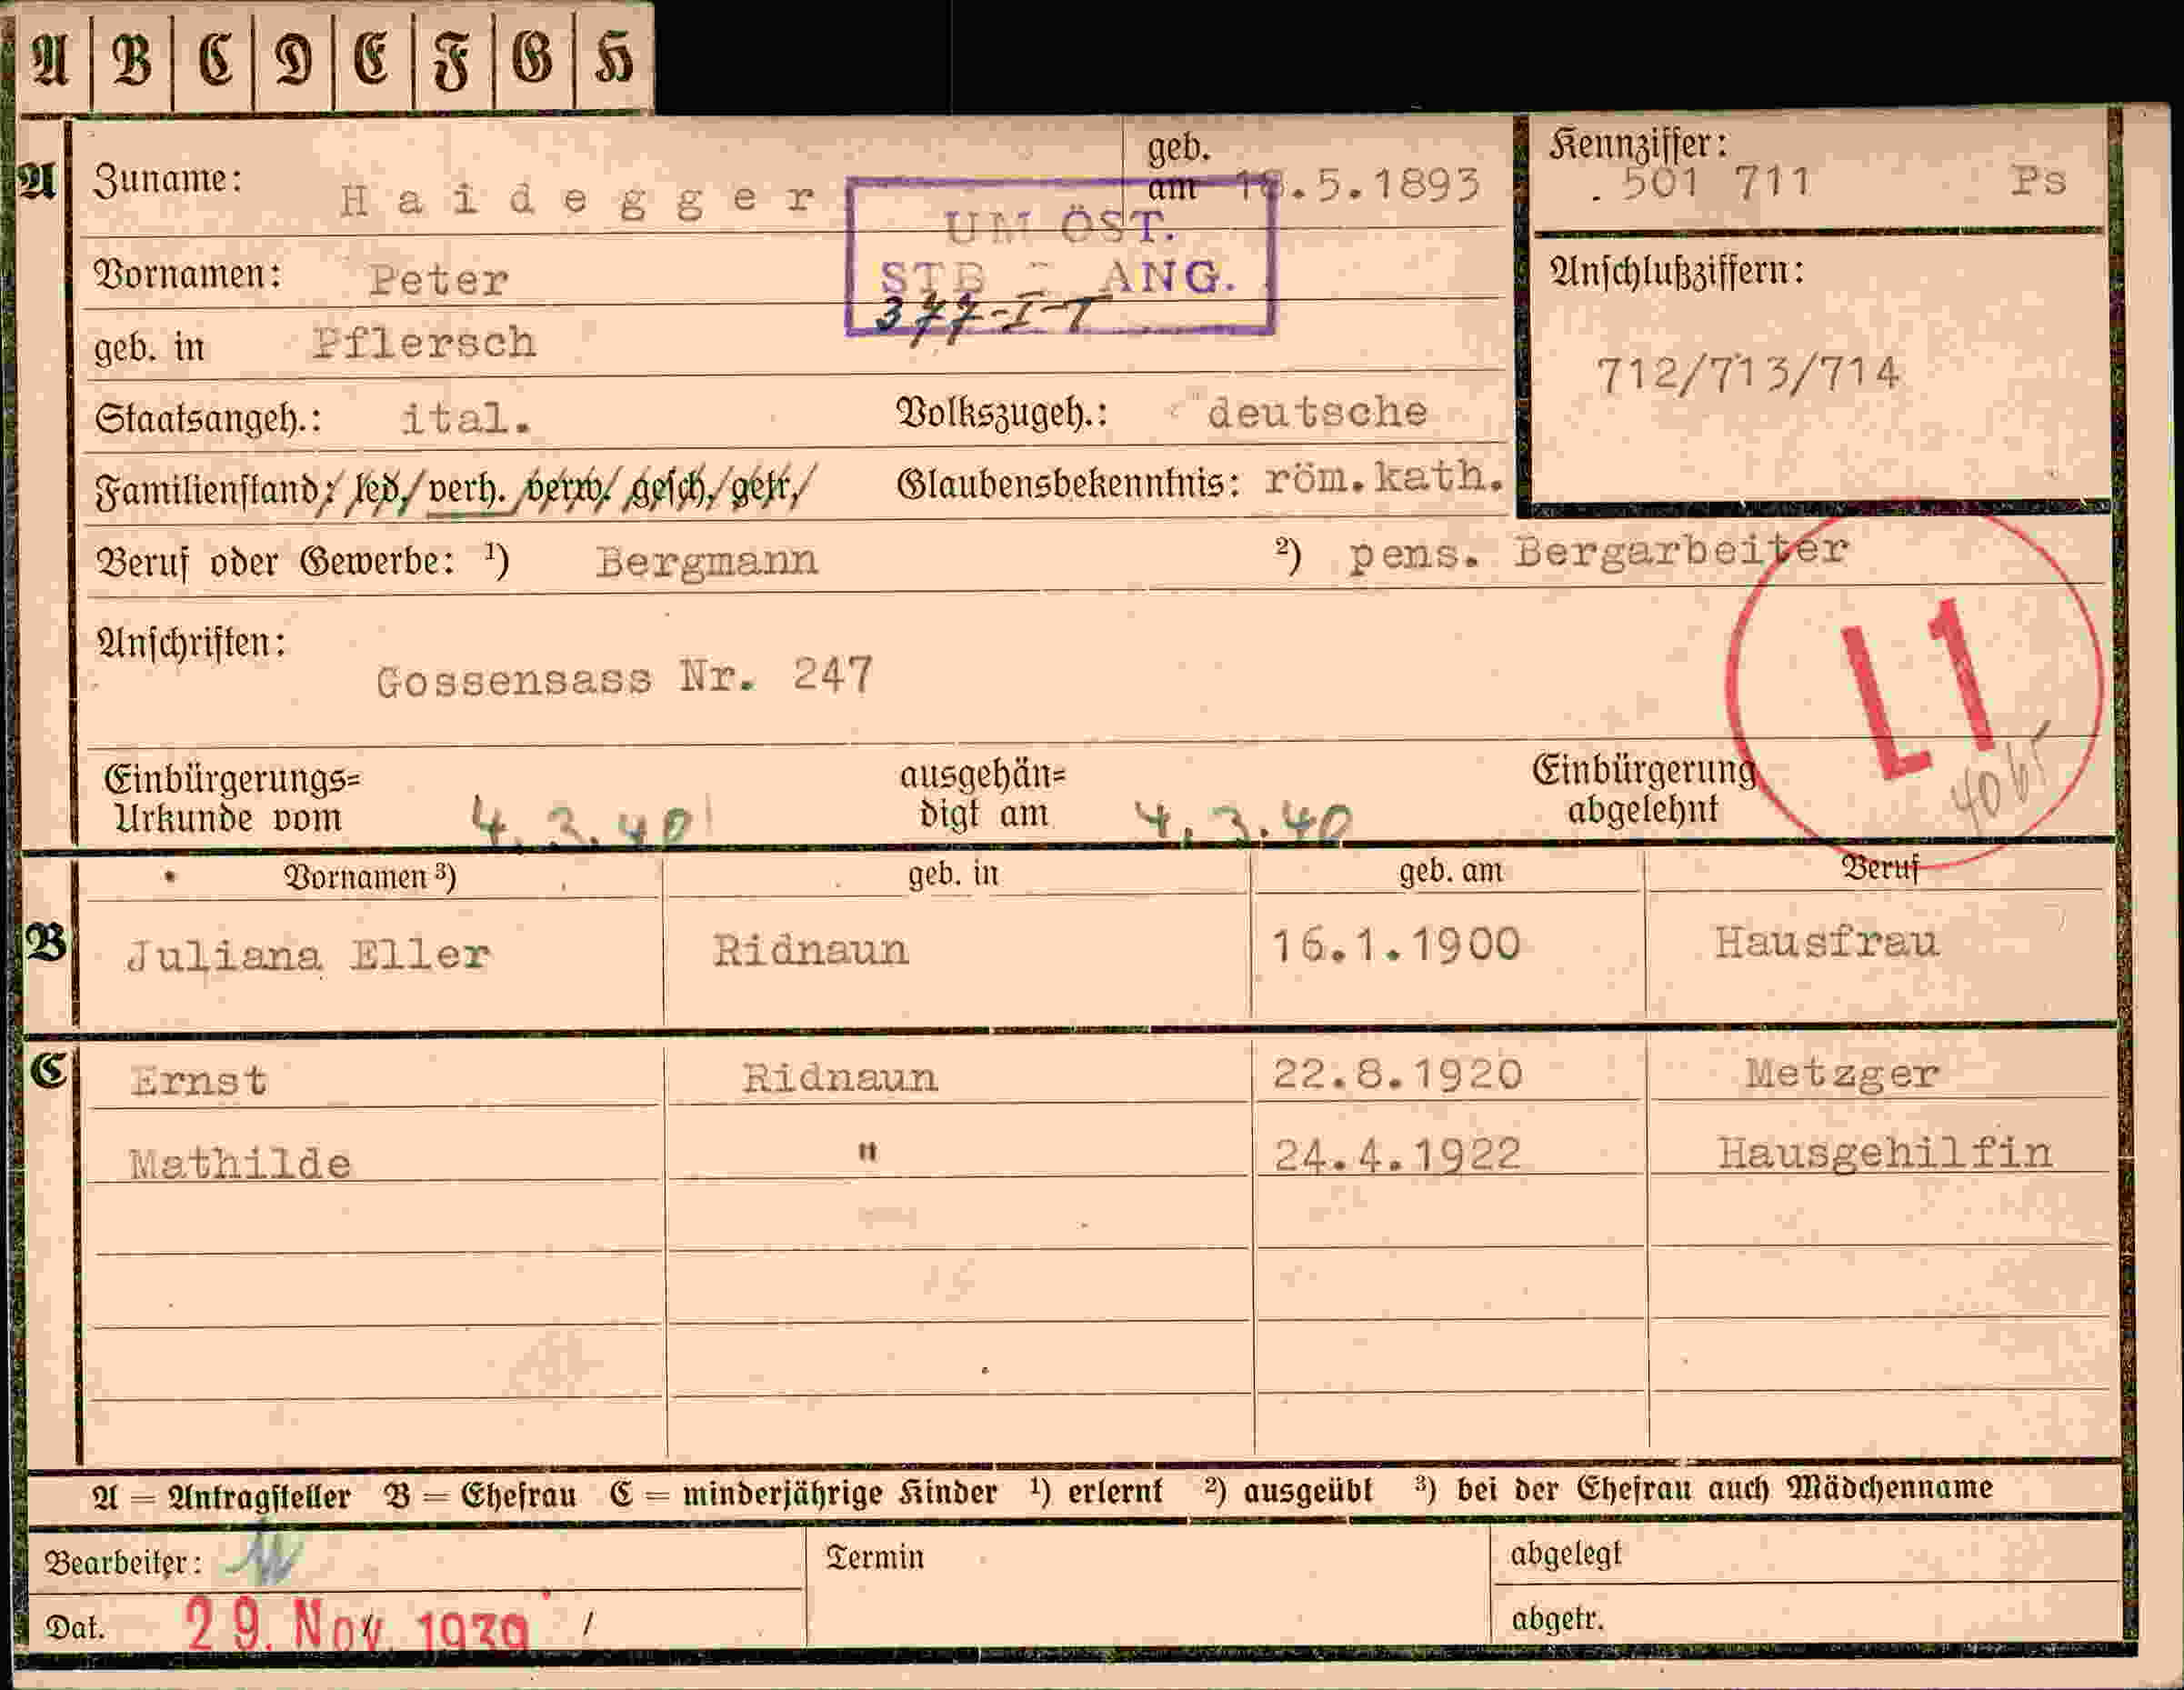 A B C D E F G H
A Zuname: Haidegger geb. am .5.1893
Kennziffer: . 501 711 Ps
UM ÖST.
STB - ANG.
377-I-T
Vornamen: Peter
Anschlußziffern:
712/713/714
geb. in Pflersch
Staatsangeh.: ital. Volkszugeh.: deutsche
Familienstand: led. verh. verw. gesch. getr. Glaubensbekenntnis: röm.kath.
Beruf oder Gewerbe: ¹) Bergmann ²) pens. Bergarbeiter
Anschriften:
Gossensass Nr. 247
L1
Einbürgerungs=
Urkunde vom 4.3.40
ausgehän=
digt am 4.3.40
Einbürgerung
abgelehnt
Vornamen ³) geb. in geb. am Beruf
B Juliana Eller Ridnaun 16.1.1900 Hausfrau
C Ernst Ridnaun 22.8.1920 Metzger
Mathilde " 24.4.1922 Hausgehilfin
A = Antragsteller B = Ehefrau C = minderjährige Kinder ¹) erlernt ²) ausgeübt ³) bei der Ehefrau auch Mädchenname
Bearbeiter:
Termin
abgelegt
Dat. 29. Nov. 1939 /
abgetr.